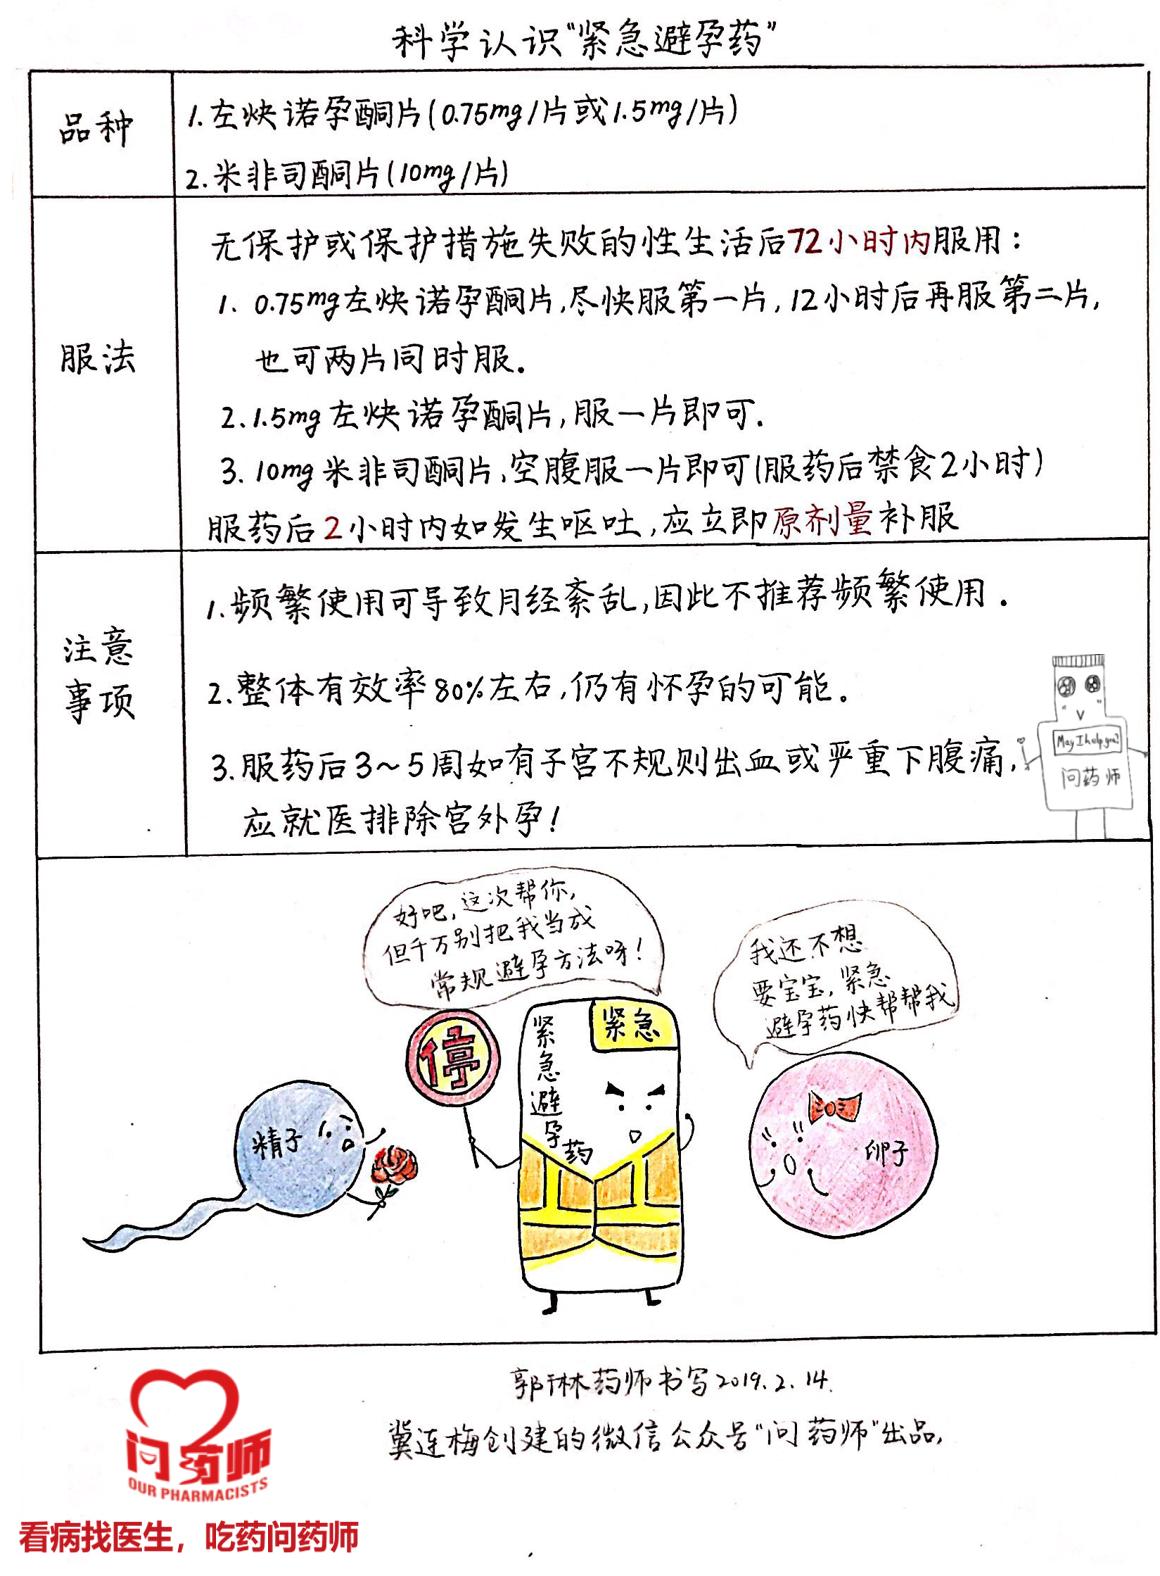 科学认识“紧急避孕药”
品种
1.左炔诺孕酮片(0.75mg/片或1.5mg/片)
2.米非司酮片(10mg/片)
服法
无保护或保护措施失败的性生活后72小时内服用:
1. 0.75mg左炔诺孕酮片,尽快服第一片,12小时后再服第二片,
也可两片同时服.
2.1.5mg左炔诺孕酮片,服一片即可.
3.10mg米非司酮片,空腹服一片即可(服药后禁食2小时)
服药后2小时内如发生呕吐,应立即原剂量补服
注意
事项
1.频繁使用可导致月经紊乱,因此不推荐频繁使用.
2.整体有效率80%左右,仍有怀孕的可能.
3.服药后3~5周如有子宫不规则出血或严重下腹痛,
应就医排除宫外孕!
May I help you?
问药师
好吧,这次帮你,
但千万别把我当成
常规避孕方法呀!
我还不想
要宝宝,紧急
避孕药快帮帮我
停
紧急避孕药
紧急
精子
卵子
郭琳药师书写2019.2.14.
冀连梅创建的微信公众号“问药师”出品,
问药师
OUR PHARMACISTS
看病找医生，吃药问药师